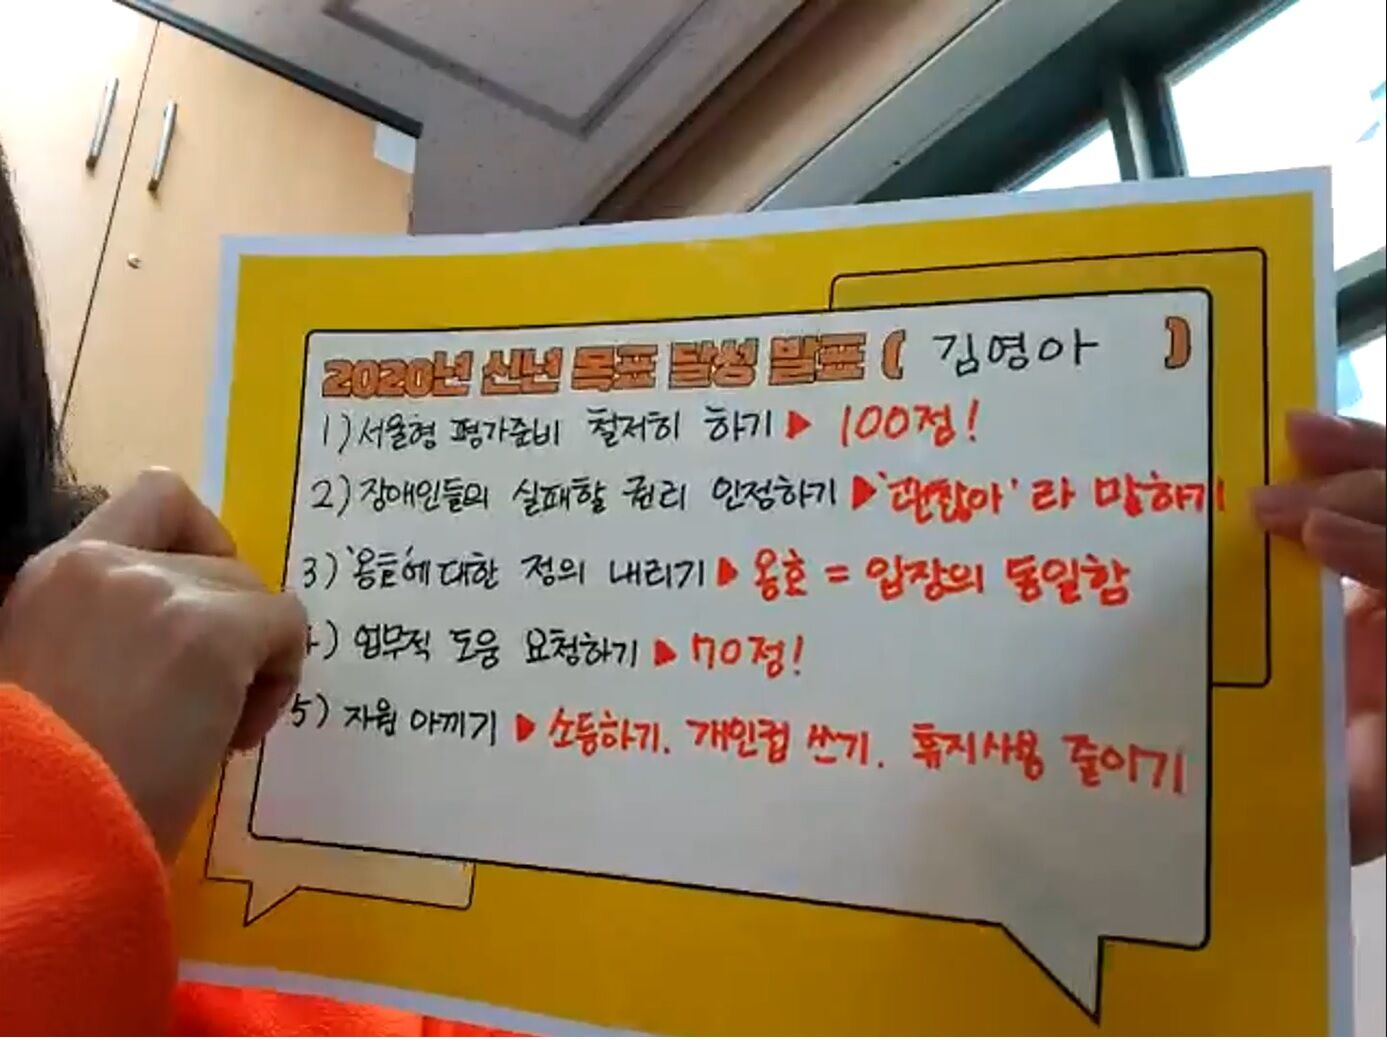 2020년 신년 목표 달성 발표 ( 김영아 )
1) 서울형 평가준비 철저히 하기 ▶ 100점!
2) 장애인들의 실패할 권리 인정하기 ▶ '괜찮아' 라 말하기
3) '옹호'에 대한 정의 내리기 ▶ 옹호 = 입장의 동일함
4) 업무적 도움 요청하기 ▶ 70점!
5) 자원 아끼기 ▶ 소등하기. 개인컵 쓰기. 휴지사용 줄이기